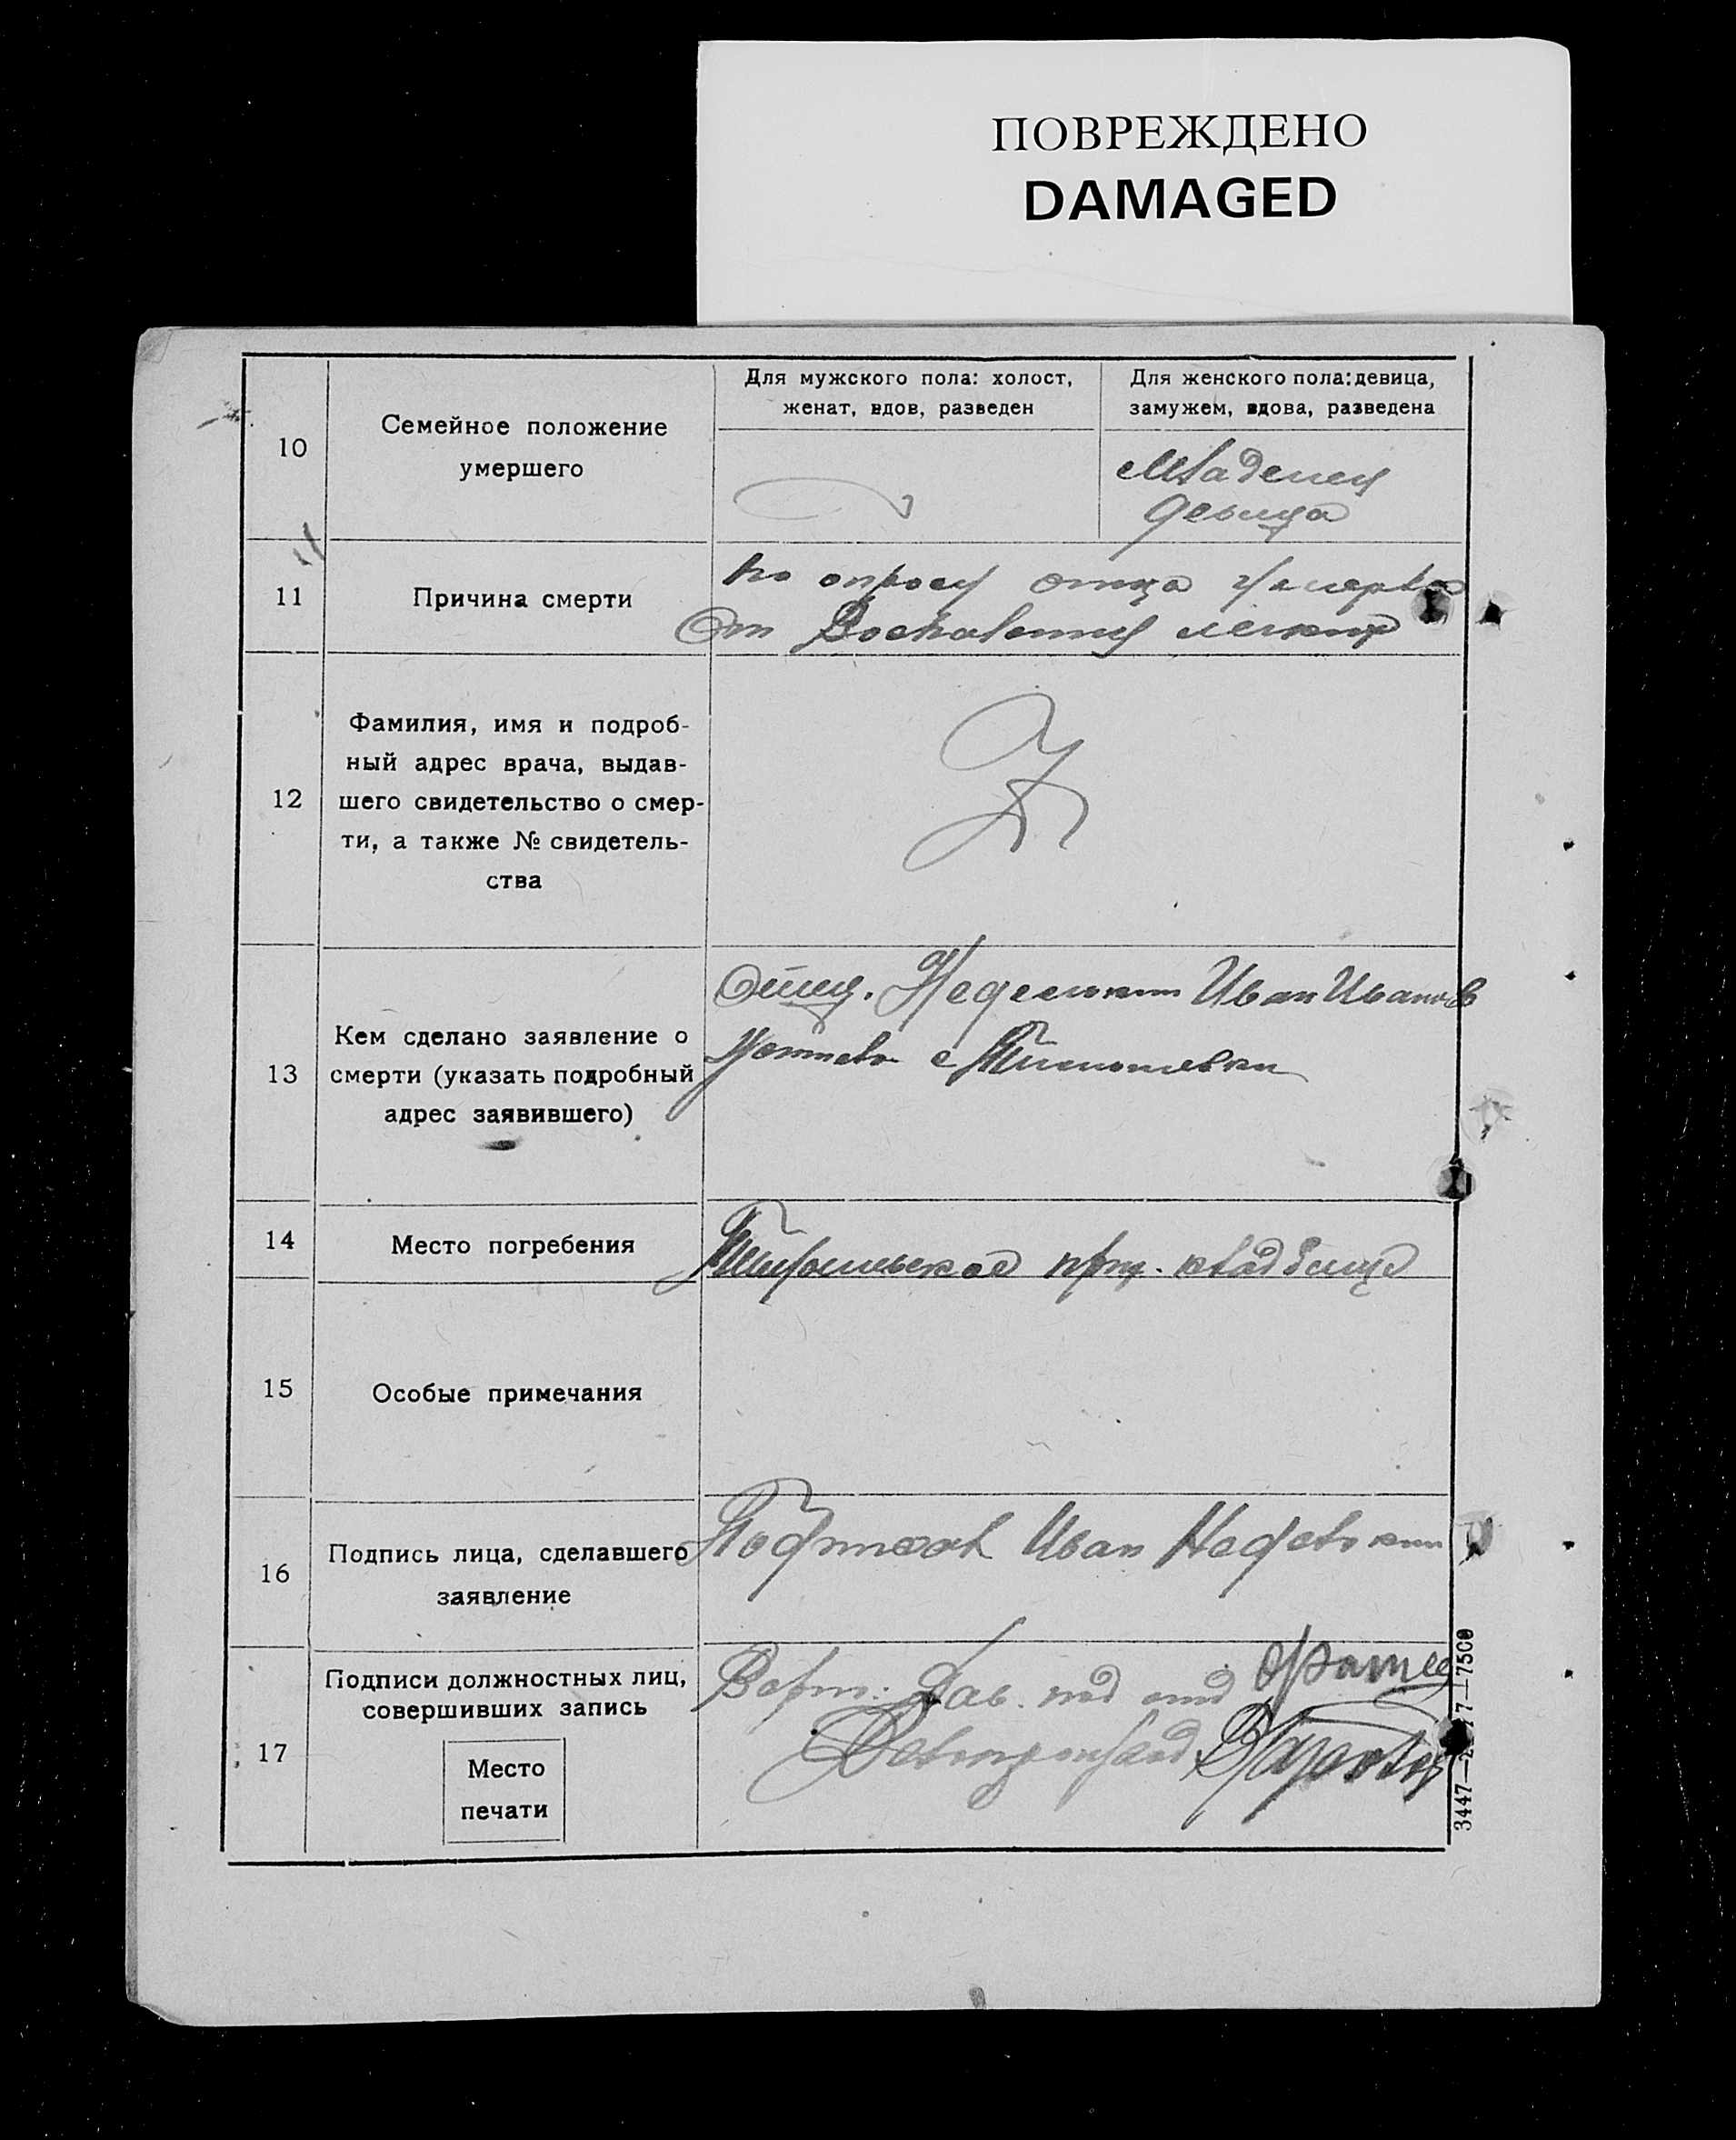 ПОВРЕЖДЕНО
DAMAGED
10
Семейное положение
умершего
Для мужского пола: холост,
женат, вдов, разведен
Для женского пола: девица,
замужем, вдова, разведена
Младенец
девица
11
Причина смерти
по опросу отца умерла
От Воспаления легких
12
Фамилия, имя и подроб-
ный адрес врача, выдав-
шего свидетельство о смер-
ти, а также № свидетель-
ства
13
Кем сделано заявление о
смерти (указать подробный
адрес заявившего)
Отец. Неделькин Иван Иванов
с Тимошевки
14
Место погребения
кладбище
15
Особые примечания
16
Подпись лица, сделавшего
заявление
Иван Неделькин
17
Подписи должностных лиц,
совершивших запись
Место
печати
Зав.
3447—2177—7500